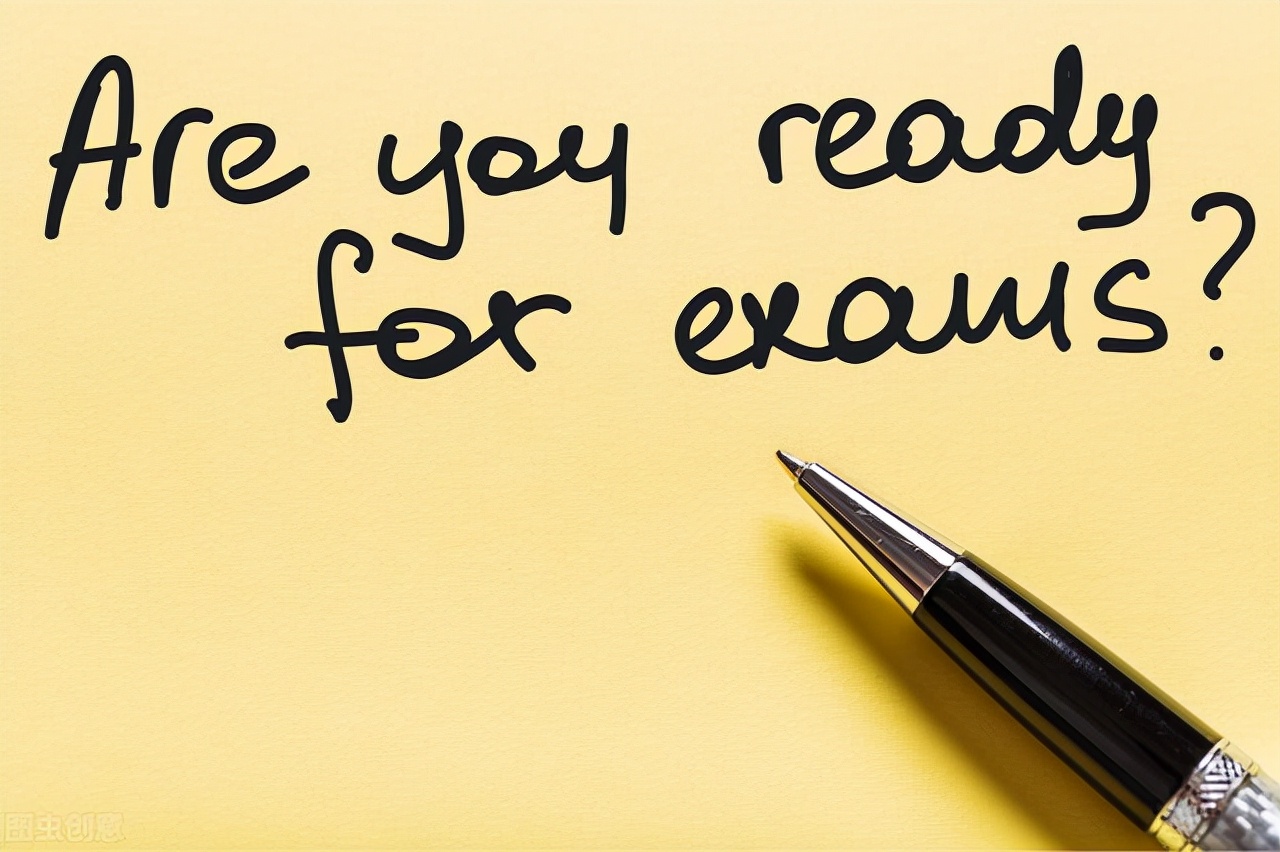 Are you ready
for exams?
图虫创意